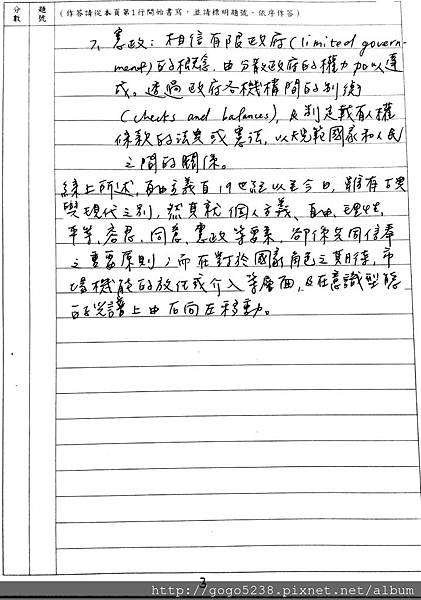 分數 題號 (作答請從本頁第1行開始書寫,並請標明題號,依序作答)
7、憲政:相信有限政府(limited govern-
ment)的概念,由分散政府的權力加以達
成。透過政府各機構間的制衡
(checks and balances),及制定載有人權
條款的法典或憲法,以規範國家和人民
之間的關係。
綜上所述,自由主義自19世紀以至今日,雖有古典
與現代之別,然其就個人主義、自由、理性、
平等、容忍、同意、憲政等要素,卻係共同信奉
之重要原則;而在對於國家角色之期待,市
場機能的放任或介入等層面,及在意識型態
的光譜上由右向左移動。
3
http://gogo5238.pixnet.net/album